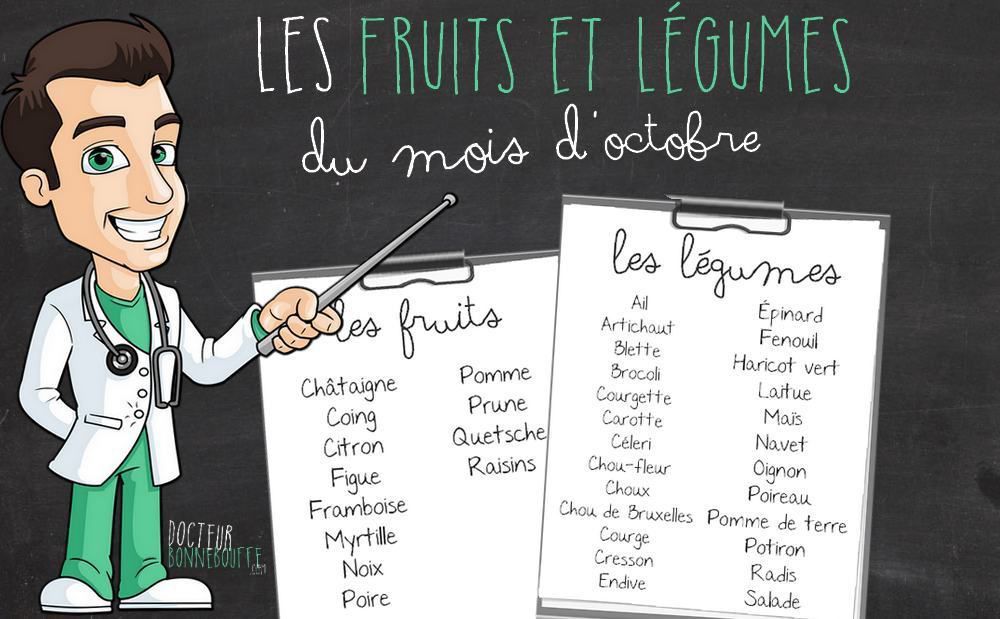 LES FRUITS ET LÉGUMES
du mois d'octobre
les fruits
Châtaigne
Coing
Citron
Figue
Framboise
Myrtille
Noix
Poire
Pomme
Prune
Quetsche
Raisins
les légumes
Ail
Artichaut
Blette
Brocoli
Courgette
Carotte
Céleri
Chou-fleur
Choux
Chou de Bruxelles
Courge
Cresson
Endive
Épinard
Fenouil
Haricot vert
Laitue
Maïs
Navet
Oignon
Poireau
Pomme de terre
Potiron
Radis
Salade
DOCTEUR
BONNEBOUFFE
.COM